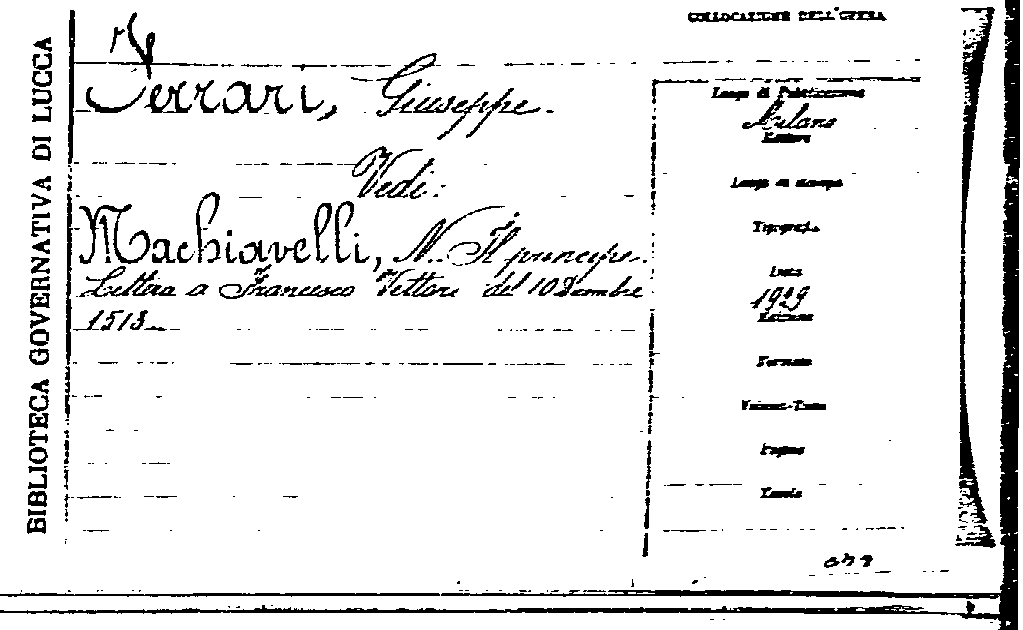 COLLOCAZIONE DELL'OPERA
BIBLIOTECA GOVERNATIVA DI LUCCA
Ferrari, Giuseppe.
Vedi:
Machiavelli, N. Il principe.
Lettera a Francesco Vettori del 10 Dicembre
1513
Luogo di Pubblicazione
Milano
Editore
Luogo di stampa
Tipografia
Data
1929
Edizione
Formato
Volumi-Tomi
Pagine
Tavole